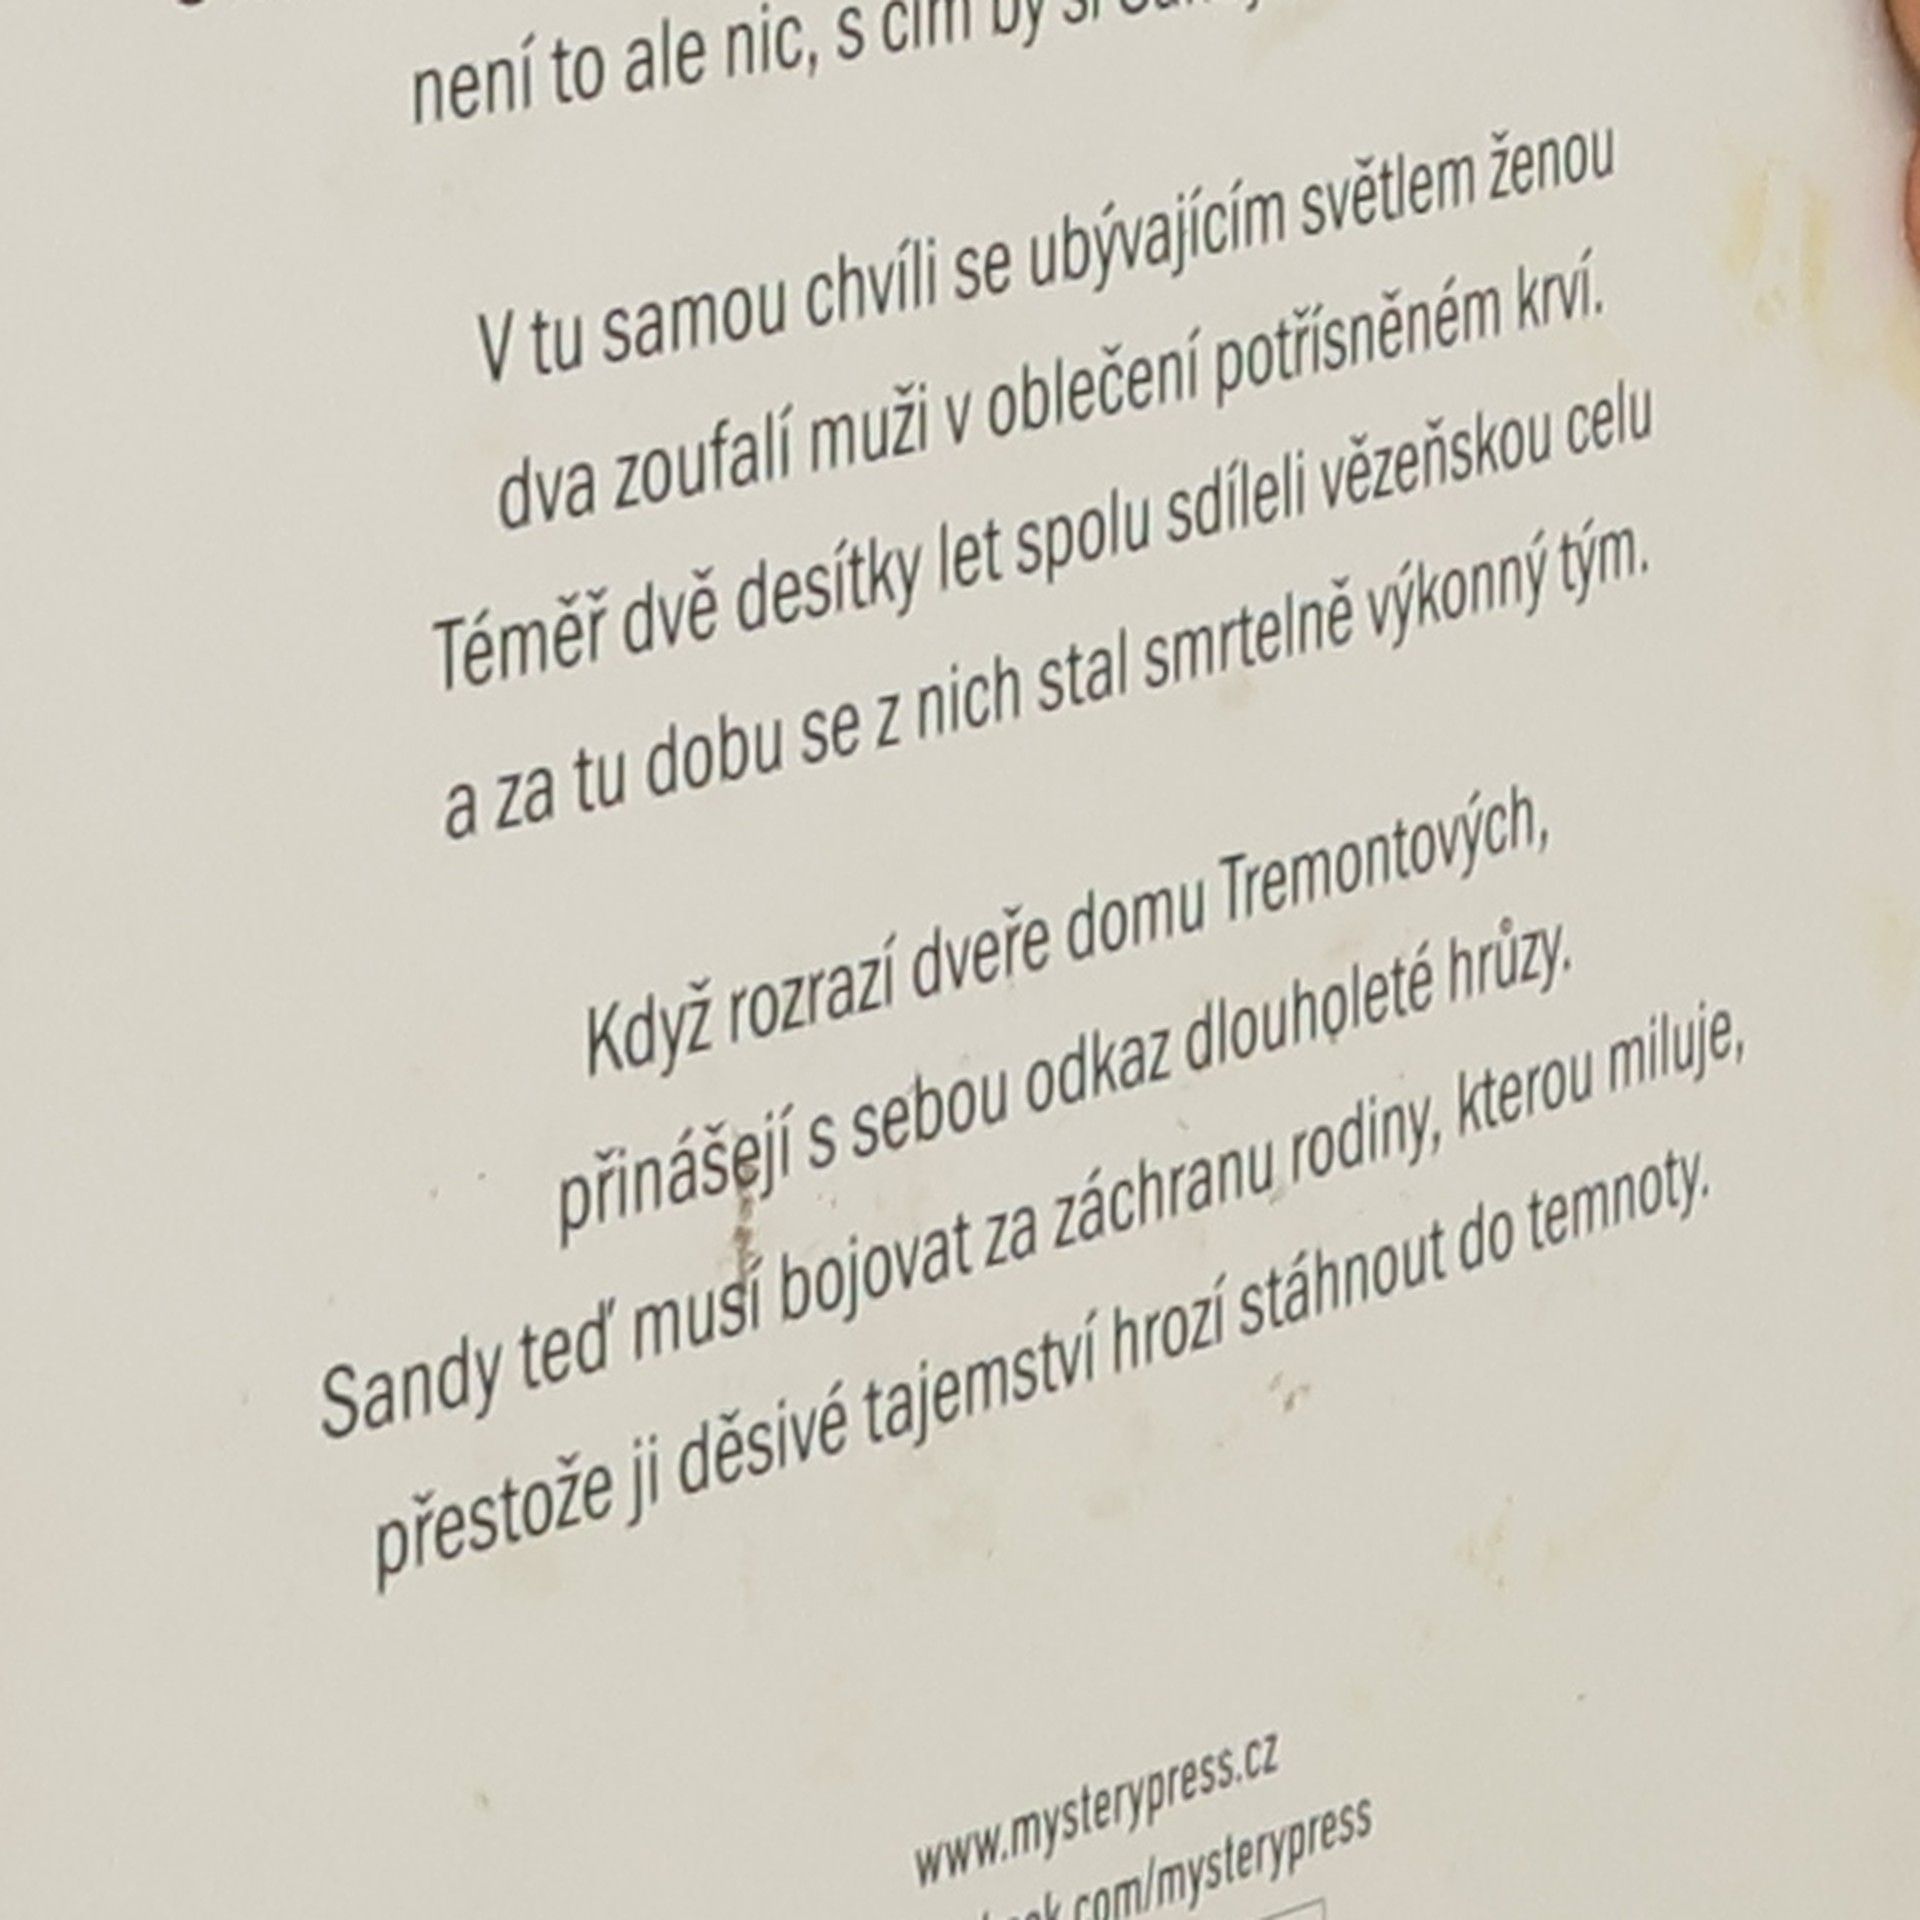 není to ale nic, s čím by si
V tu samou chvíli se ubývajícím světlem ženou
dva zoufalí muži v oblečení potřísněném krví.
Téměř dvě desítky let spolu sdíleli vězeňskou celu
a za tu dobu se z nich stal smrtelně výkonný tým.
Když rozrazí dveře domu Tremontových,
přinášejí s sebou odkaz dlouholeté hrůzy.
Sandy teď musí bojovat za záchranu rodiny, kterou miluje,
přestože ji děsivé tajemství hrozí stáhnout do temnoty.
www.mysterypress.cz
com/mysterypress